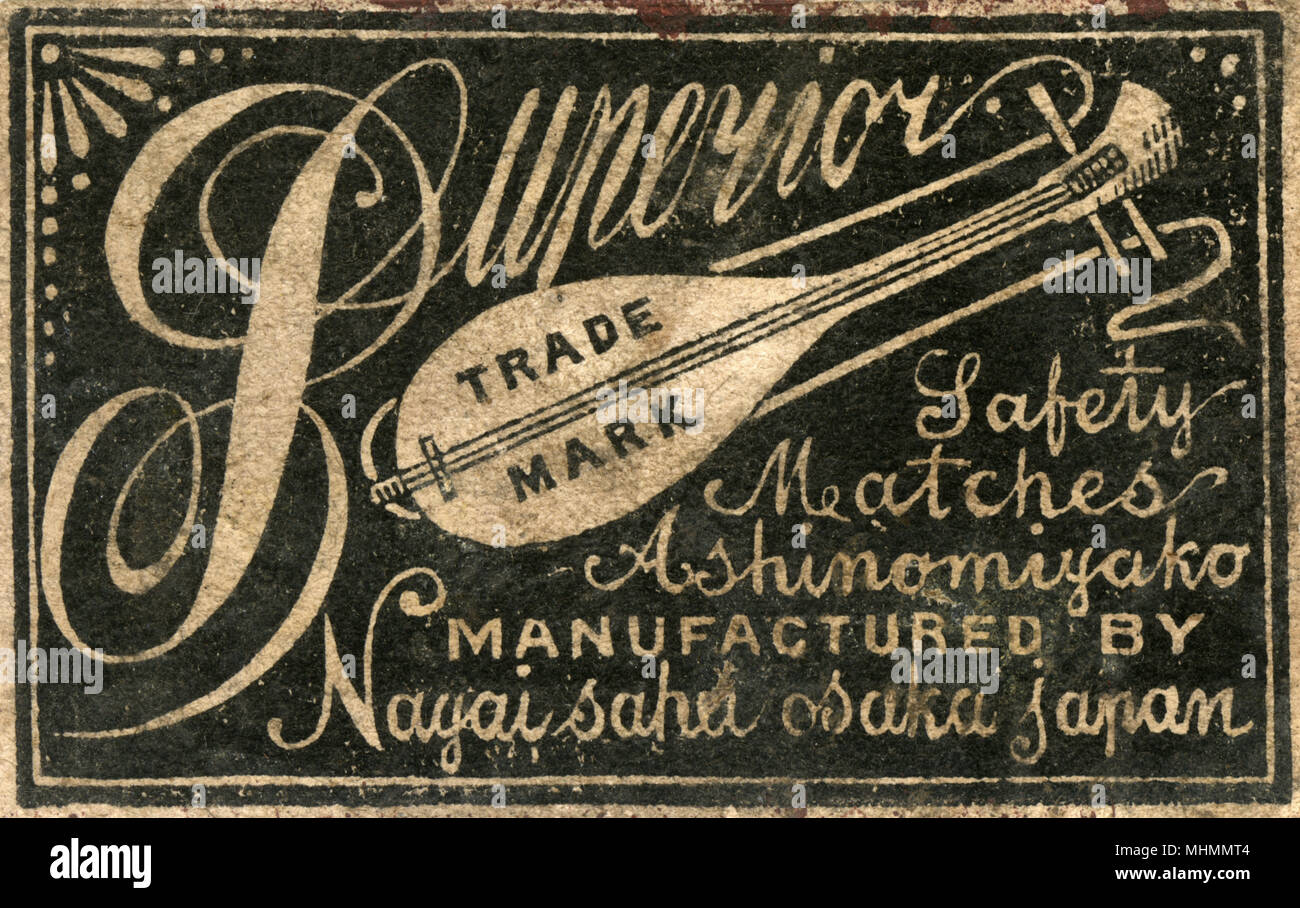 Superior
TRADE
MARK
Safety
Matches
Ashinomiyako
MANUFACTURED BY
Nagai saha osaka japan
alamy
Image ID: MHMMT4
www.alamy.com